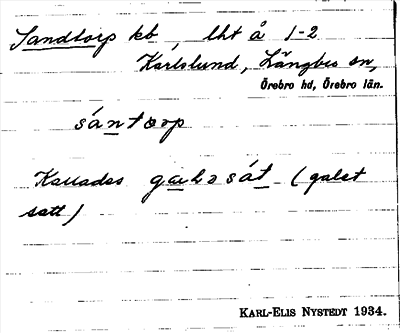 Sandtorp kb lht å 1-2
Karlslund, Längbro sn,
Örebro hd, Örebro län.
sántorp
Kallades galasát (galet
satt)
KARL-ELIS NYSTEDT 1934.